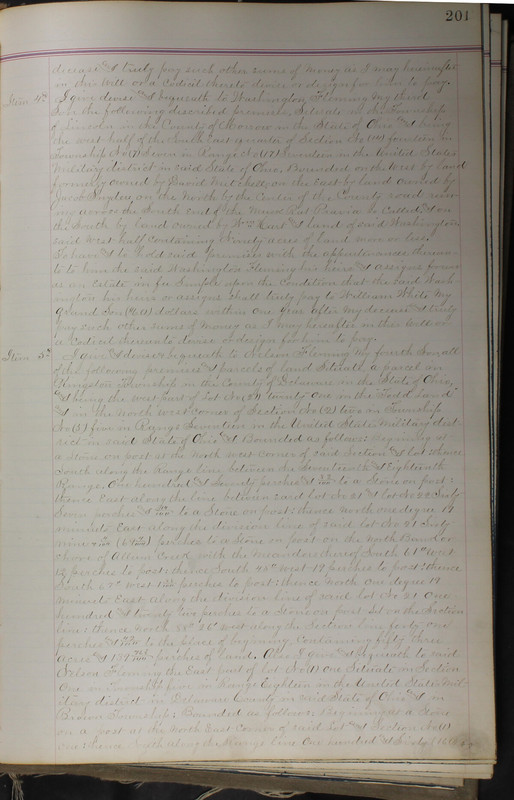 201
decease & truly pay such other sums of money as I may hereinafter
in this Will or a Codicil thereto devise or design for him to pay.
Item 4th I give devise & bequeath to Washington Fleming my third
Son the following described premises, Situate in the Township
of Lincoln in the County of Morrow in the State of Ohio & being
the west half of the South East quarter of Section No (14) fourteen in
Township No (7) Seven in Range No (17) Seventeen in the United States
Military district in said State of Ohio, Bounded on the West by land
formerly owned by David Mitchell, on the East by land owned by
Jacob on the North by the Center of the County road run-
ning across the North end of the so Called, & on
the South by land owned by Wm Hart & land of said Washington
said West half Containing Ninety acres of land more or less
To have & to Hold said premises with the appurtenances there-
to to him the said Washington Fleming his heirs & assigns forever
as an Estate in fee Simple upon the Condition that the said Wash-
ington his heirs or assigns shall truly pay to William White My
Grand Son dollars within One Year after My decease & truly
pay such other sums of money as I may hereafter in this Will or
a Codicil thereto devise or design for him to pay.
Item 5th I give & devise & bequeath to Nelson Fleming My fourth Son all
of the following premises & parcels of land Situate, a parcel in
Kingston Township in the County of Delaware in the State of Ohio,
& being the west part of Lot No (21) twenty One in the land
& in the North west corner of Section No (2) two in Township
No (5) five in Range Seventeen in the United States Military dist
rict in said State of Ohio & Bounded as follows: Beginning at
a Stone on post at the North West corner of said Section & Lot: thence
South along the Range line between the Seventeenth & Eighteenth
Range, One hundred & Seventy perches & to a Stone on post:
thence East along the line between said Lot No 21 & Lot No 22 Sixty
Seven perches & to a Stone on post: thence North one degree 19
minutes East along the division line of said Lot No 21 Sixty
nine perches to a Stone on post on the North Bank or
shore of Allum Creek with the Meanders thereof South 61° West
12 perches to post: thence South 48° West 19 perches to post: thence
South 62° West perches to post: thence North One degree 19
minutes East along the division line of said Lot No 21 One
hundred & twenty five perches to a Stone on post Set on the Section
line: thence North 88° 26' West along the Section line forty one
perches & to the place of beginning Containing fifty three
acres & 131 perches of land. Also I give & bequeath to said
Nelson Fleming the East part of Lot No (1) One Situate in Section
One in Township four in Range Eighteen in the United States Mil-
itary district in Delaware County in said State of Ohio & in
Brown Township: Bounded as follows: Beginning at a Stone
on a post at the North East Corner of said Lot & Section No (1)
One: thence South along the Range line One hundred & Sixty